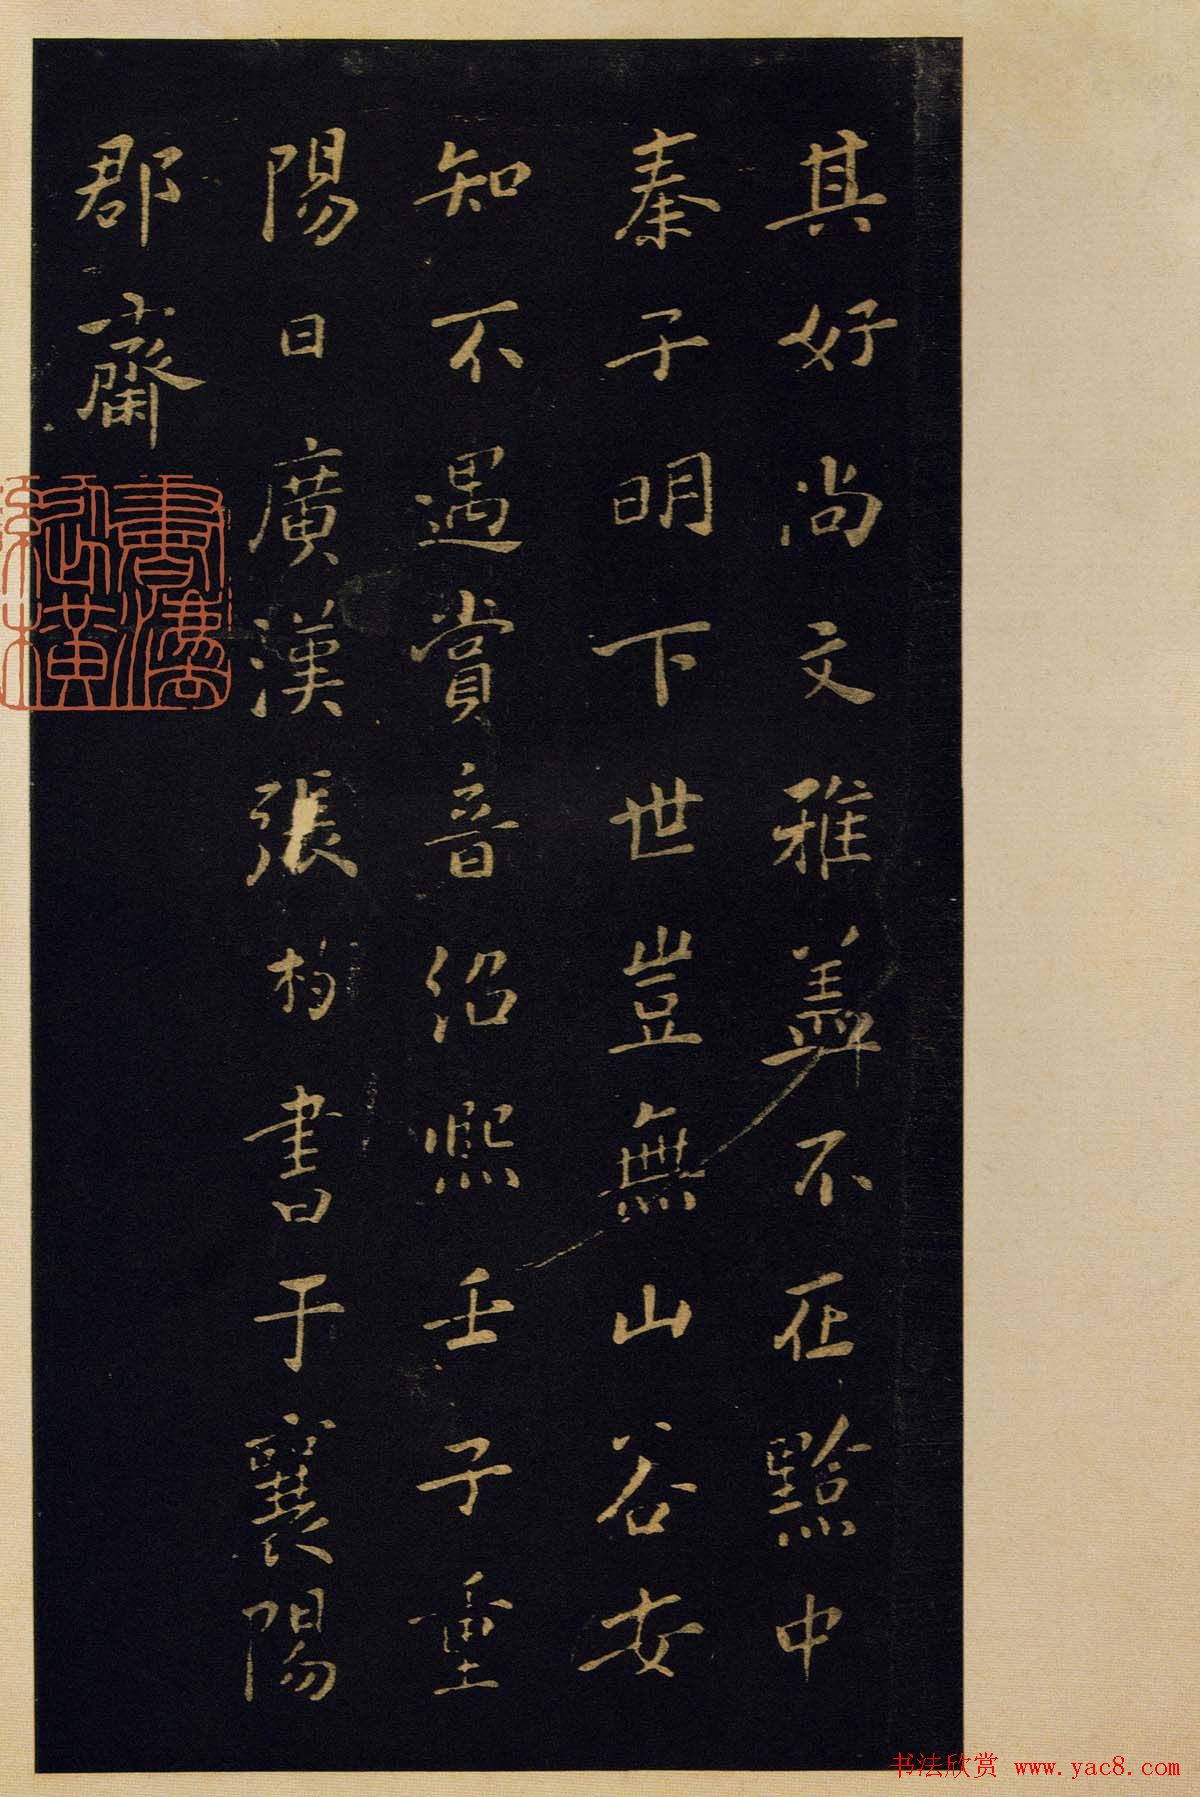 其好尚文雅葢不在黔中
秦子明下世豈無山谷安
知不遇賞音紹熙壬子重
陽日廣漢張杓書于襄陽
郡齋
书法欣赏 www.yac8.com